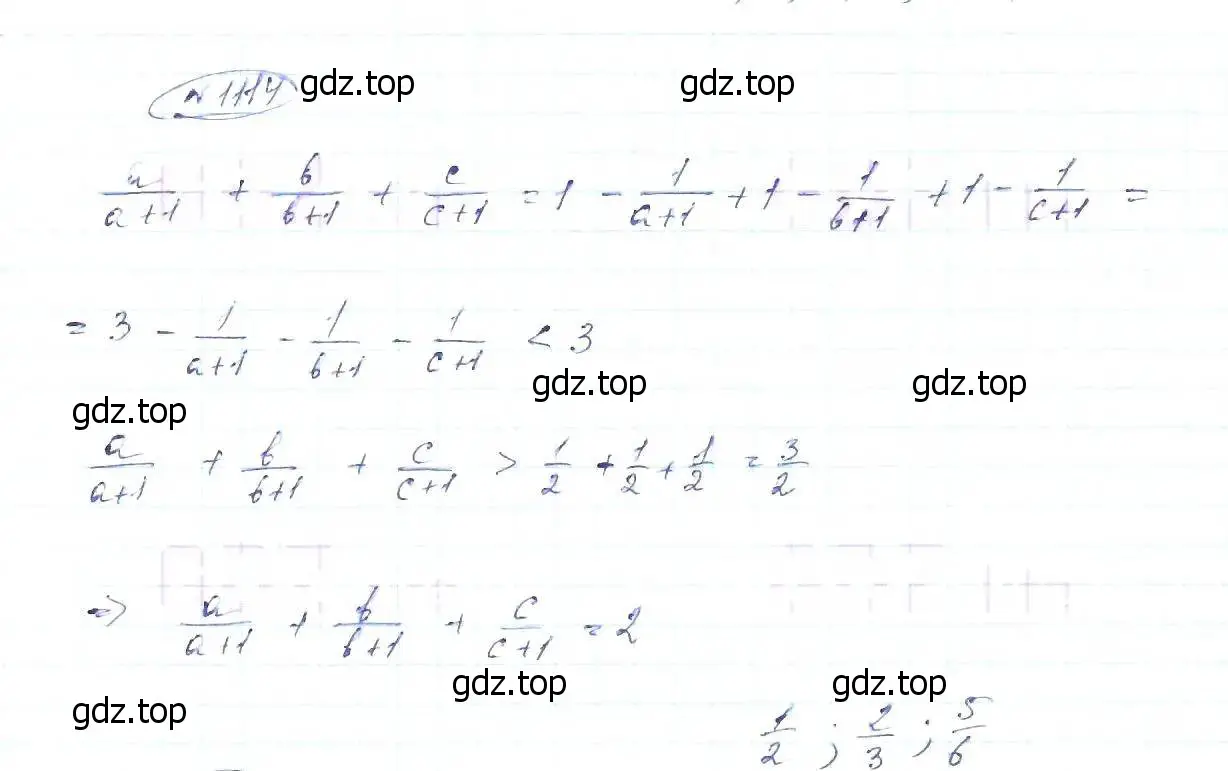 № 1114 gdz.top gdz.top
a/(a+1) + b/(b+1) + c/(c+1) = 1 - 1/(a+1) + 1 - 1/(b+1) + 1 - 1/(c+1) =
= 3 - 1/(a+1) - 1/(b+1) - 1/(c+1) < 3
gdz.top gdz.top gdz.top
a/(a+1) + b/(b+1) + c/(c+1) > 1/2 + 1/2 + 1/2 = 3/2
=> a/(a+1) + b/(b+1) + c/(c+1) = 2
gdz.top gdz.top gdz.top
1/2 ; 2/3 ; 5/6